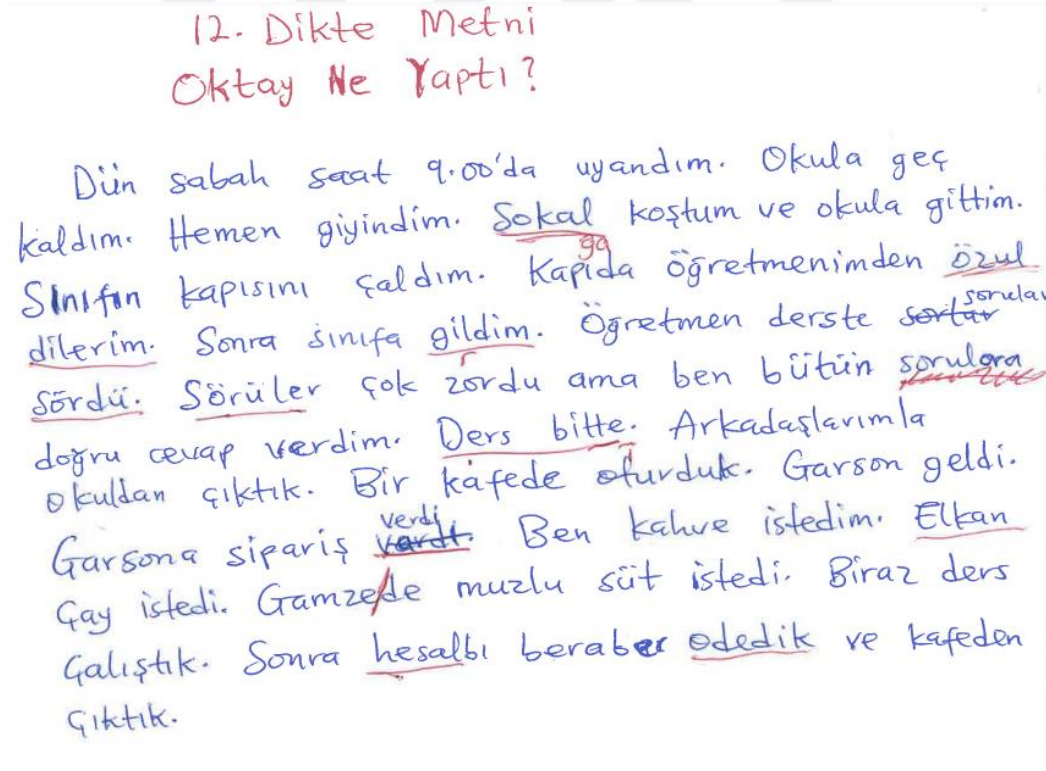 12. Dikte Metni
Oktay Ne Yaptı?
Dün sabah saat 9.00'da uyandım. Okula geç
kaldım. Hemen giyindim. Sokal koştum ve okula gittim.
ga
Sınıfın kapısını çaldım. Kapıda öğretmenimden özul
dilerim. Sonra sınıfa gildim. Öğretmen derste sortar sorular
r
sördü. Sörüler çok zordu ama ben bütün sorulara
doğru cevap verdim. Ders bitte. Arkadaşlarımla
okuldan çıktık. Bir kafede oturduk. Garson geldi.
verdi
Garsona sipariş vardt. Ben kahve istedim. Elkan
Çay istedi. Gamze/de muzlu süt istedi. Biraz ders
Çalıştık. Sonra hesalbı beraber odedik ve kafeden
Çıktık.